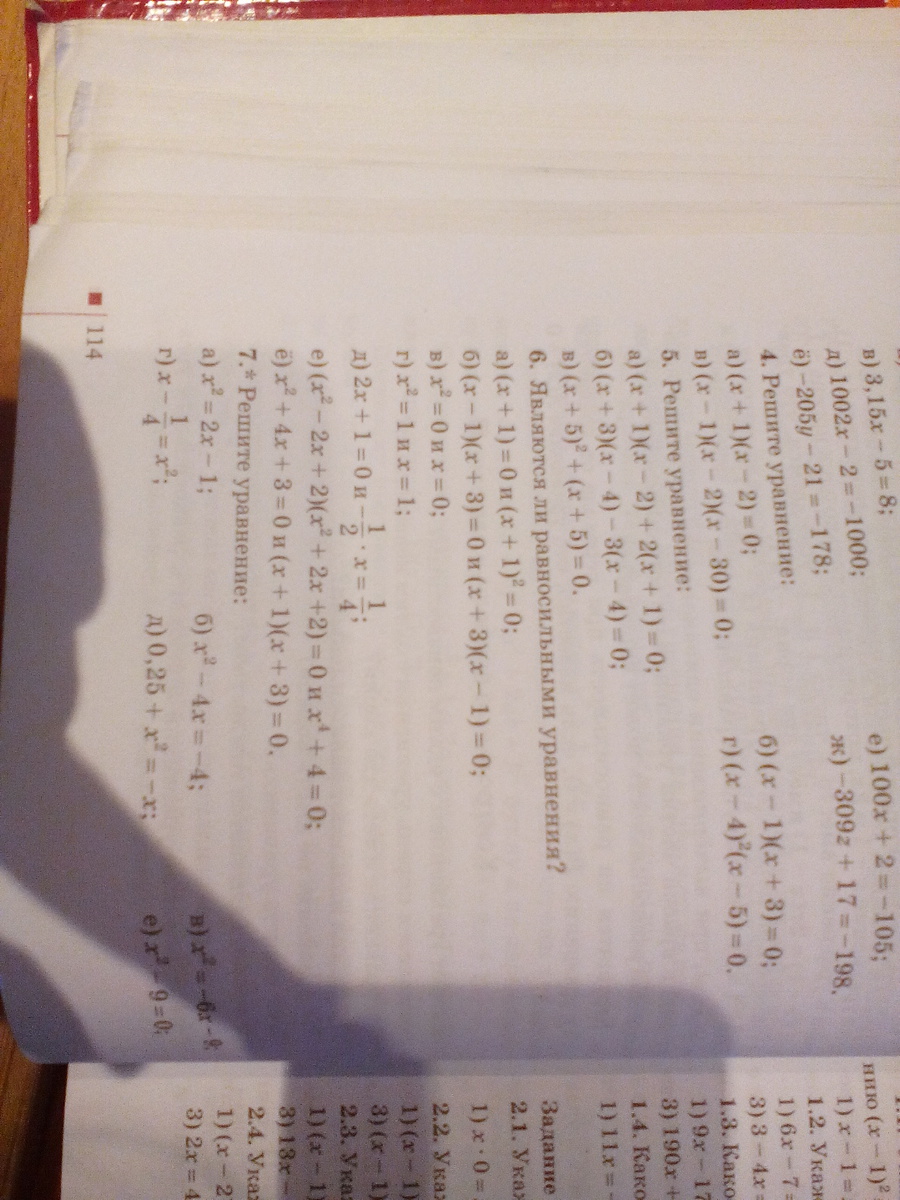 в) 3,15x − 5 = 8;
е) 100x + 2 = −105;
д) 1002x − 2 = −1000;
ж) −309z + 17 = −198.
ё) −205y − 21 = −178;
4. Решите уравнение:
а) (x + 1)(x − 2) = 0;
б) (x − 1)(x + 3) = 0;
в) (x − 1)(x − 2)(x − 30) = 0;
г) (x − 4)²(x − 5) = 0.
5. Решите уравнение:
а) (x + 1)(x − 2) + 2(x + 1) = 0;
б) (x + 3)(x − 4) − 3(x − 4) = 0;
в) (x + 5)² + (x + 5) = 0.
6. Являются ли равносильными уравнения?
а) (x + 1) = 0 и (x + 1)² = 0;
б) (x − 1)(x + 3) = 0 и (x + 3)(x − 1) = 0;
в) x² = 0 и x = 0;
г) x² = 1 и x = 1;
д) 2x + 1 = 0 и −1/2 · x = 1/4;
е) (x² − 2x + 2)(x² + 2x + 2) = 0 и x⁴ + 4 = 0;
ё) x² + 4x + 3 = 0 и (x + 1)(x + 3) = 0.
7.* Решите уравнение:
а) x² = 2x − 1;
б) x² − 4x = −4;
в) x² = −6x − 9;
г) x − 1/4 = x²;
д) 0,25 + x² = −x;
е) x² − 9 = 0;
114
нию (x − 1)²
1) x − 1 =
1.2.
1) 6x − 7
3) 3 − 4x
1.3.
1) 9x − 17
3) 190x +
1.4.
1) 11x = −
Задание
2.1.
1) x · 0 =
2.2.
1) (x − 1)
3) (x − 1)
2.3.
1) (x − 1)
3) 13x −
2.4.
1) (x − 2
3) 2x = 4